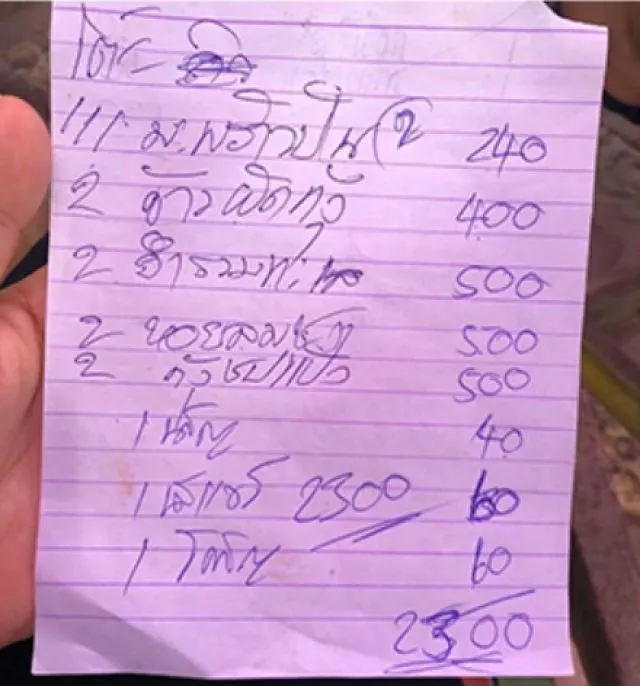 โต๊ะ
111 ม.พร้าวปั่น (2 240
2 ข้าวผัดกุ้ง 400
2 ยำรวมทะเล 500
2 หอยลมชุบ 500
2 กุ้งชุปแป้ง 500
1 น้ำ 40
1 2300 60
1 โค้ก 60
2300